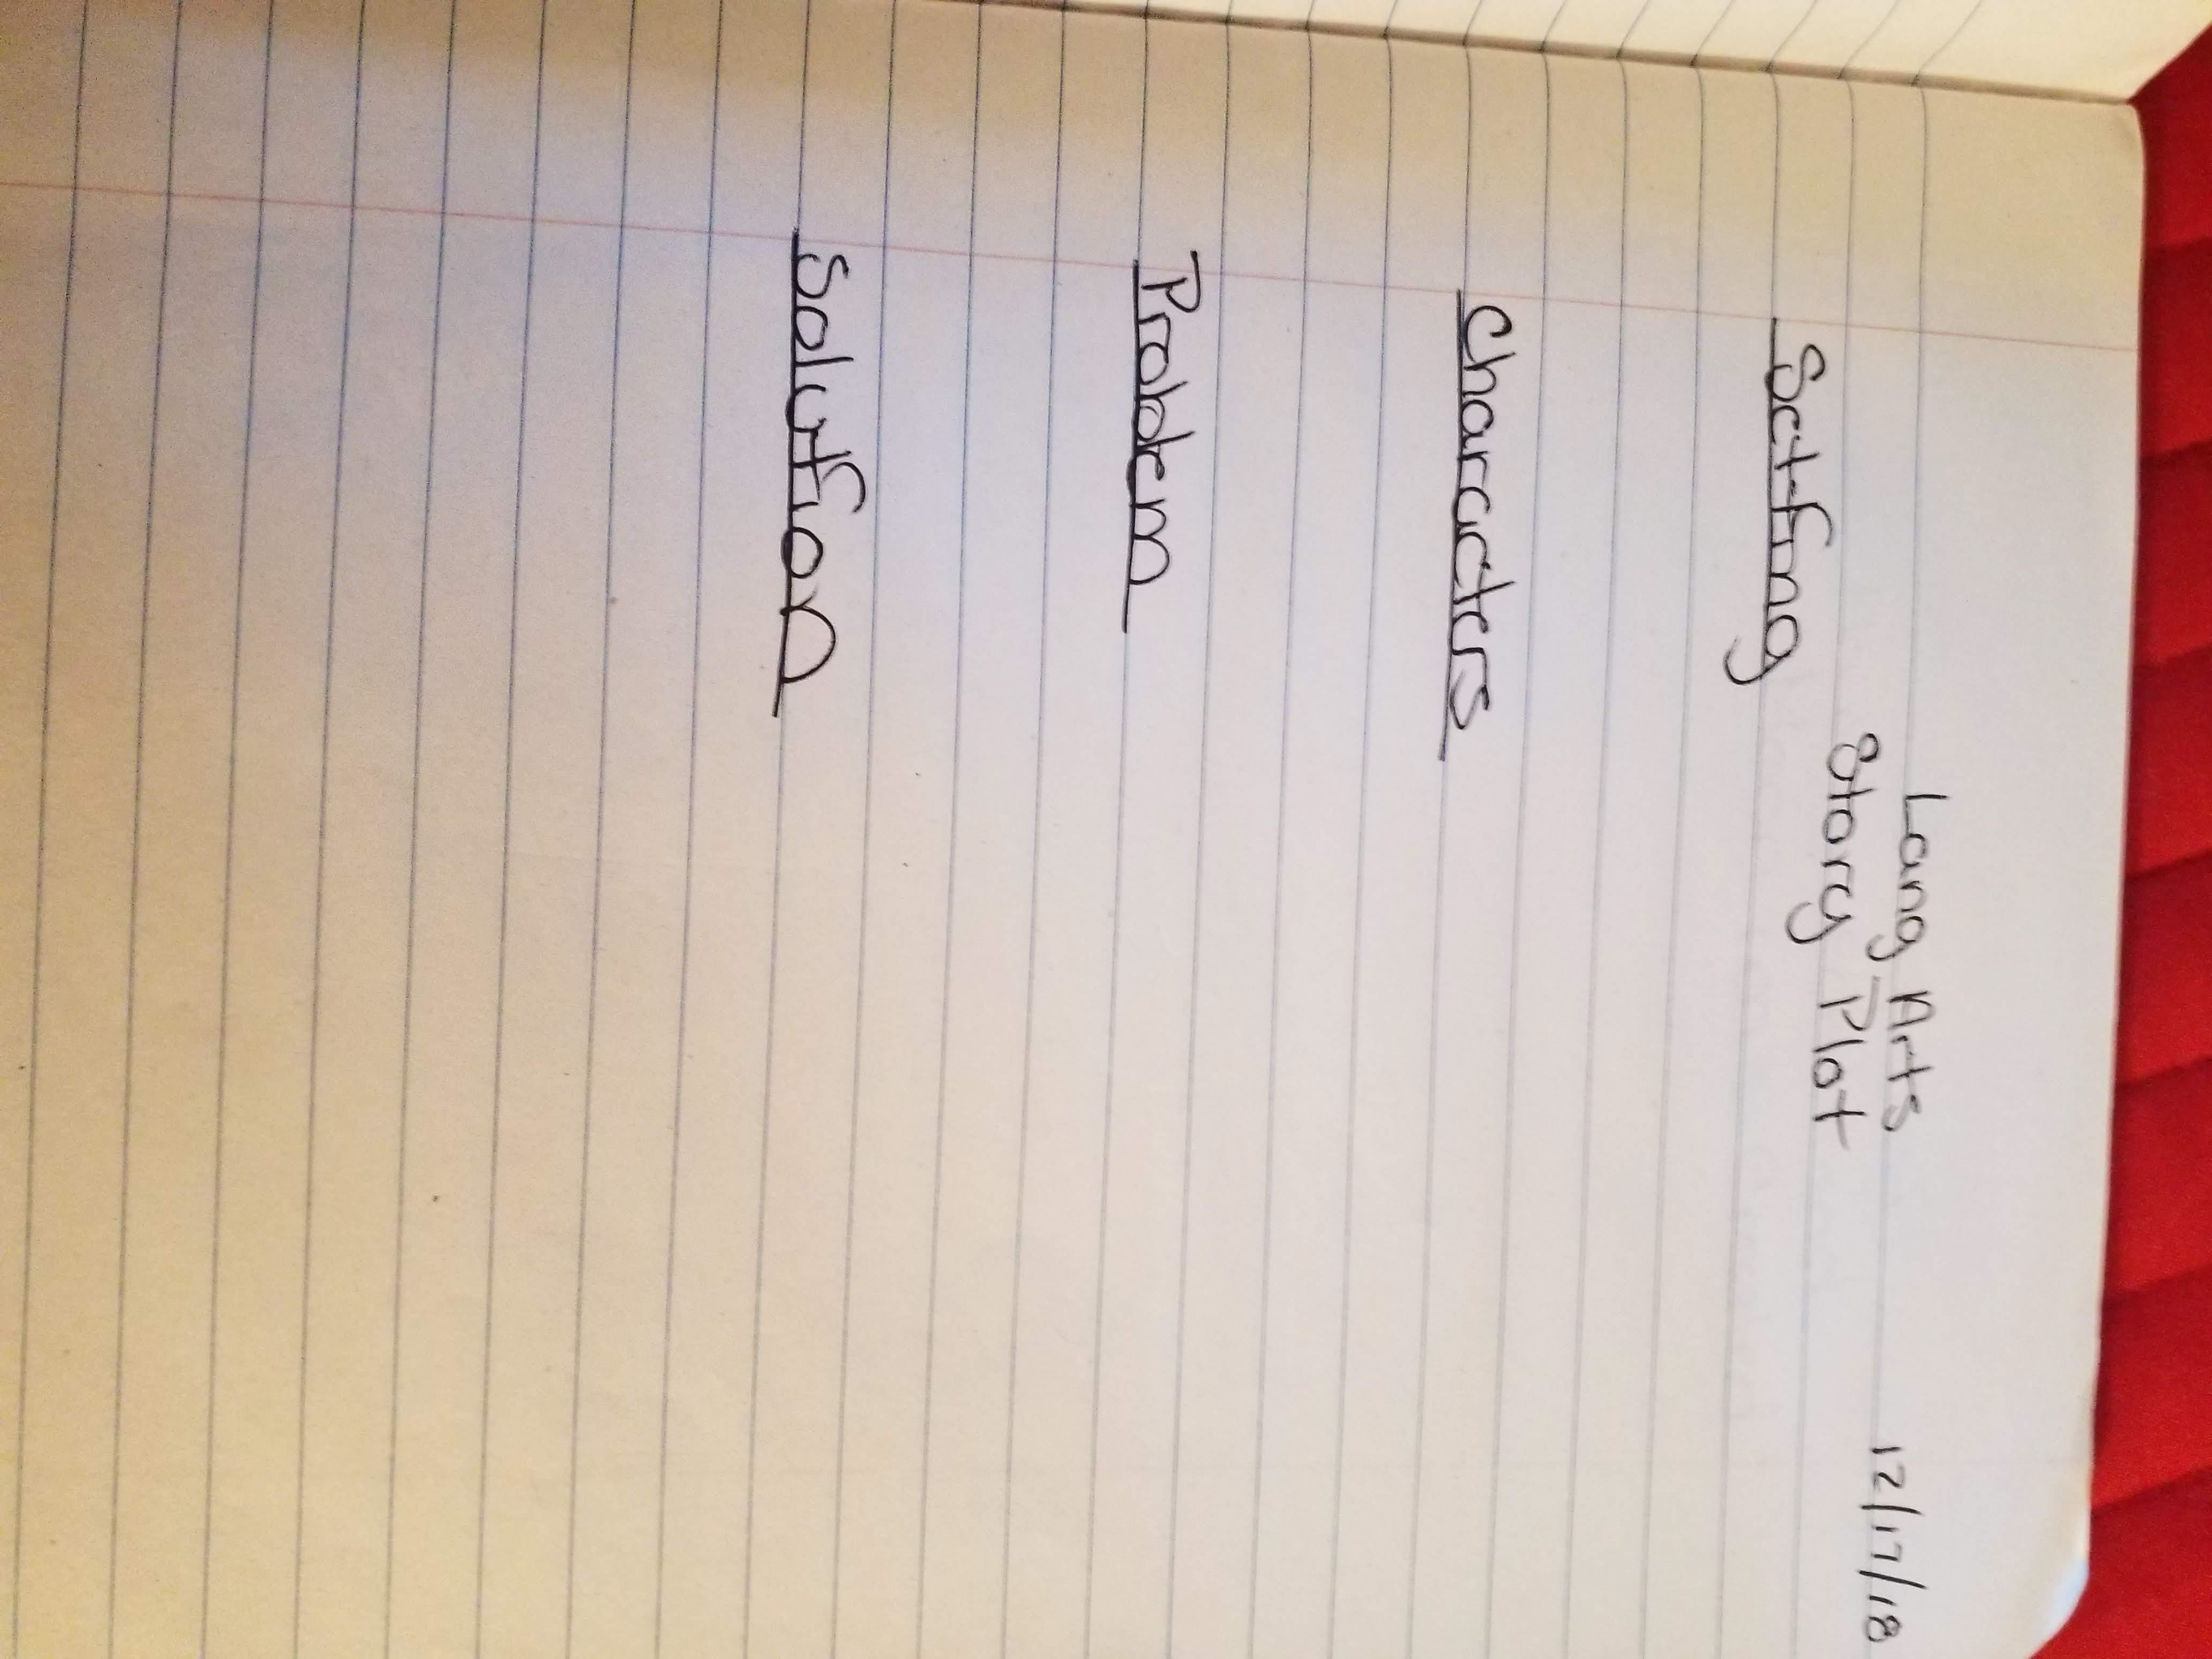 Lang Arts 12/17/18
Story Plot
Setting
Characters
Problem
Solution